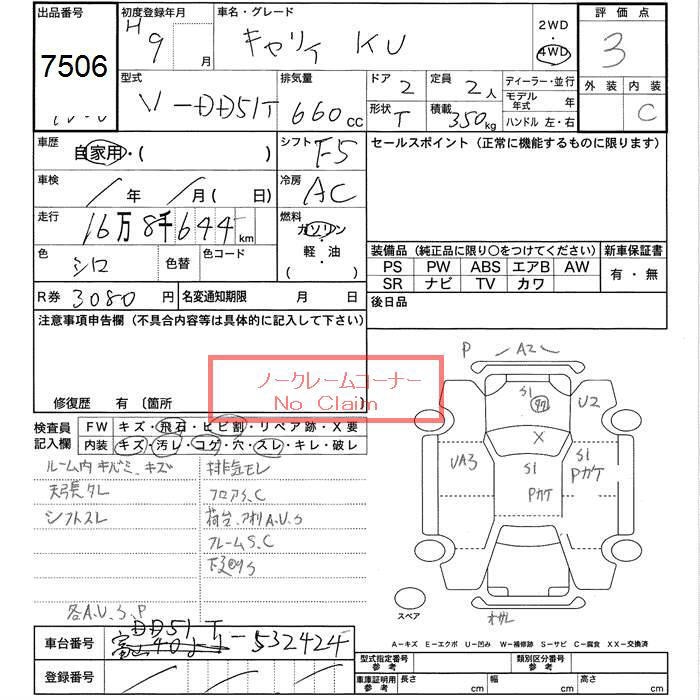 出品番号 初度登録年月 車名・グレード 2WD 評価点
7506 H 9 月 キャリィ KU 4WD 3
型式 排気量 ドア 定員 ディーラー・並行 外装 内装
V-DD51T 660 cc 2 2人 モデル年式 年 C
形状 T 積載 350kg ハンドル 左・右
車歴 自家用・( ) シフト F5 セールスポイント(正常に機能するものに限ります)
車検 年 月( 日) 冷房 AC
走行 16万8千644km 燃料 ガソリン
軽・油
( )
色 シロ 色替 色コード
装備品(純正品に限り○をつけてください) 新車保証書
PS PW ABS エアB AW 有・無
SR ナビ TV カワ
R券 3080円 名変通知期限 月 日 後日品
注意事項申告欄(不具合内容等は具体的に記入して下さい)
ノークレームコーナー
No Claim
修復歴 有〔箇所 〕
検査員記入欄 FW キズ・飛石・ヒビ割・リペア跡・X要
内装 キズ・汚レ・コゲ・穴・スレ・キレ・破レ
ルーム内 キバミ、キズ 排気モレ
天張タレ フロアS、C
シフトスレ 荷台、アオリA、U、S
フレームS、C
下廻りS
各A、U、S、P
P A2
S1 U2
X
UA3 S1 S1
Pカケ Pカケ
スペア
A-キズ E-エクボ U-凹み W-補修跡 S-サビ C-腐食 XX-交換済
車台番号 DD51T-532424
登録番号
型式指定番号 参考 類別区分番号 参考
車庫証明用 参考 長さ cm 幅 cm 高さ cm